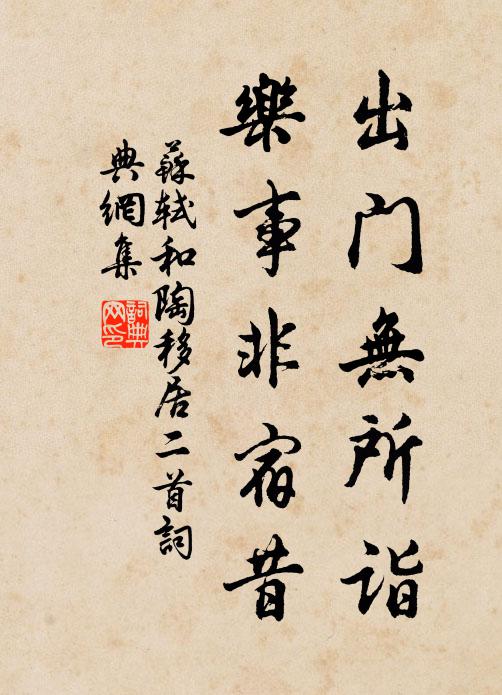 出门無所詣
樂事非宿昔
蘇軾和陶移居二首詞
典網集
詞典
网印